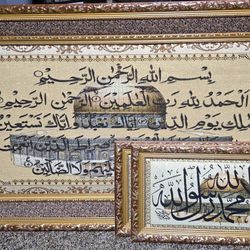 بِسْمِ اللهِ الرَّحْمٰنِ الرَّحِيْمِ
اَلْحَمْدُ لِلّٰهِ رَبِّ الْعٰلَمِيْنَ الرَّحْمٰنِ الرَّحِيْمِ
مٰلِكِ يَوْمِ الدِّيْنِ اِيَّاكَ نَعْبُدُ وَاِيَّاكَ نَسْتَعِيْنُ
صِرَاطَ الَّذِيْنَ اَنْعَمْتَ
وَلَا الضَّآلِّيْنَ
الله
محمد رسول الله